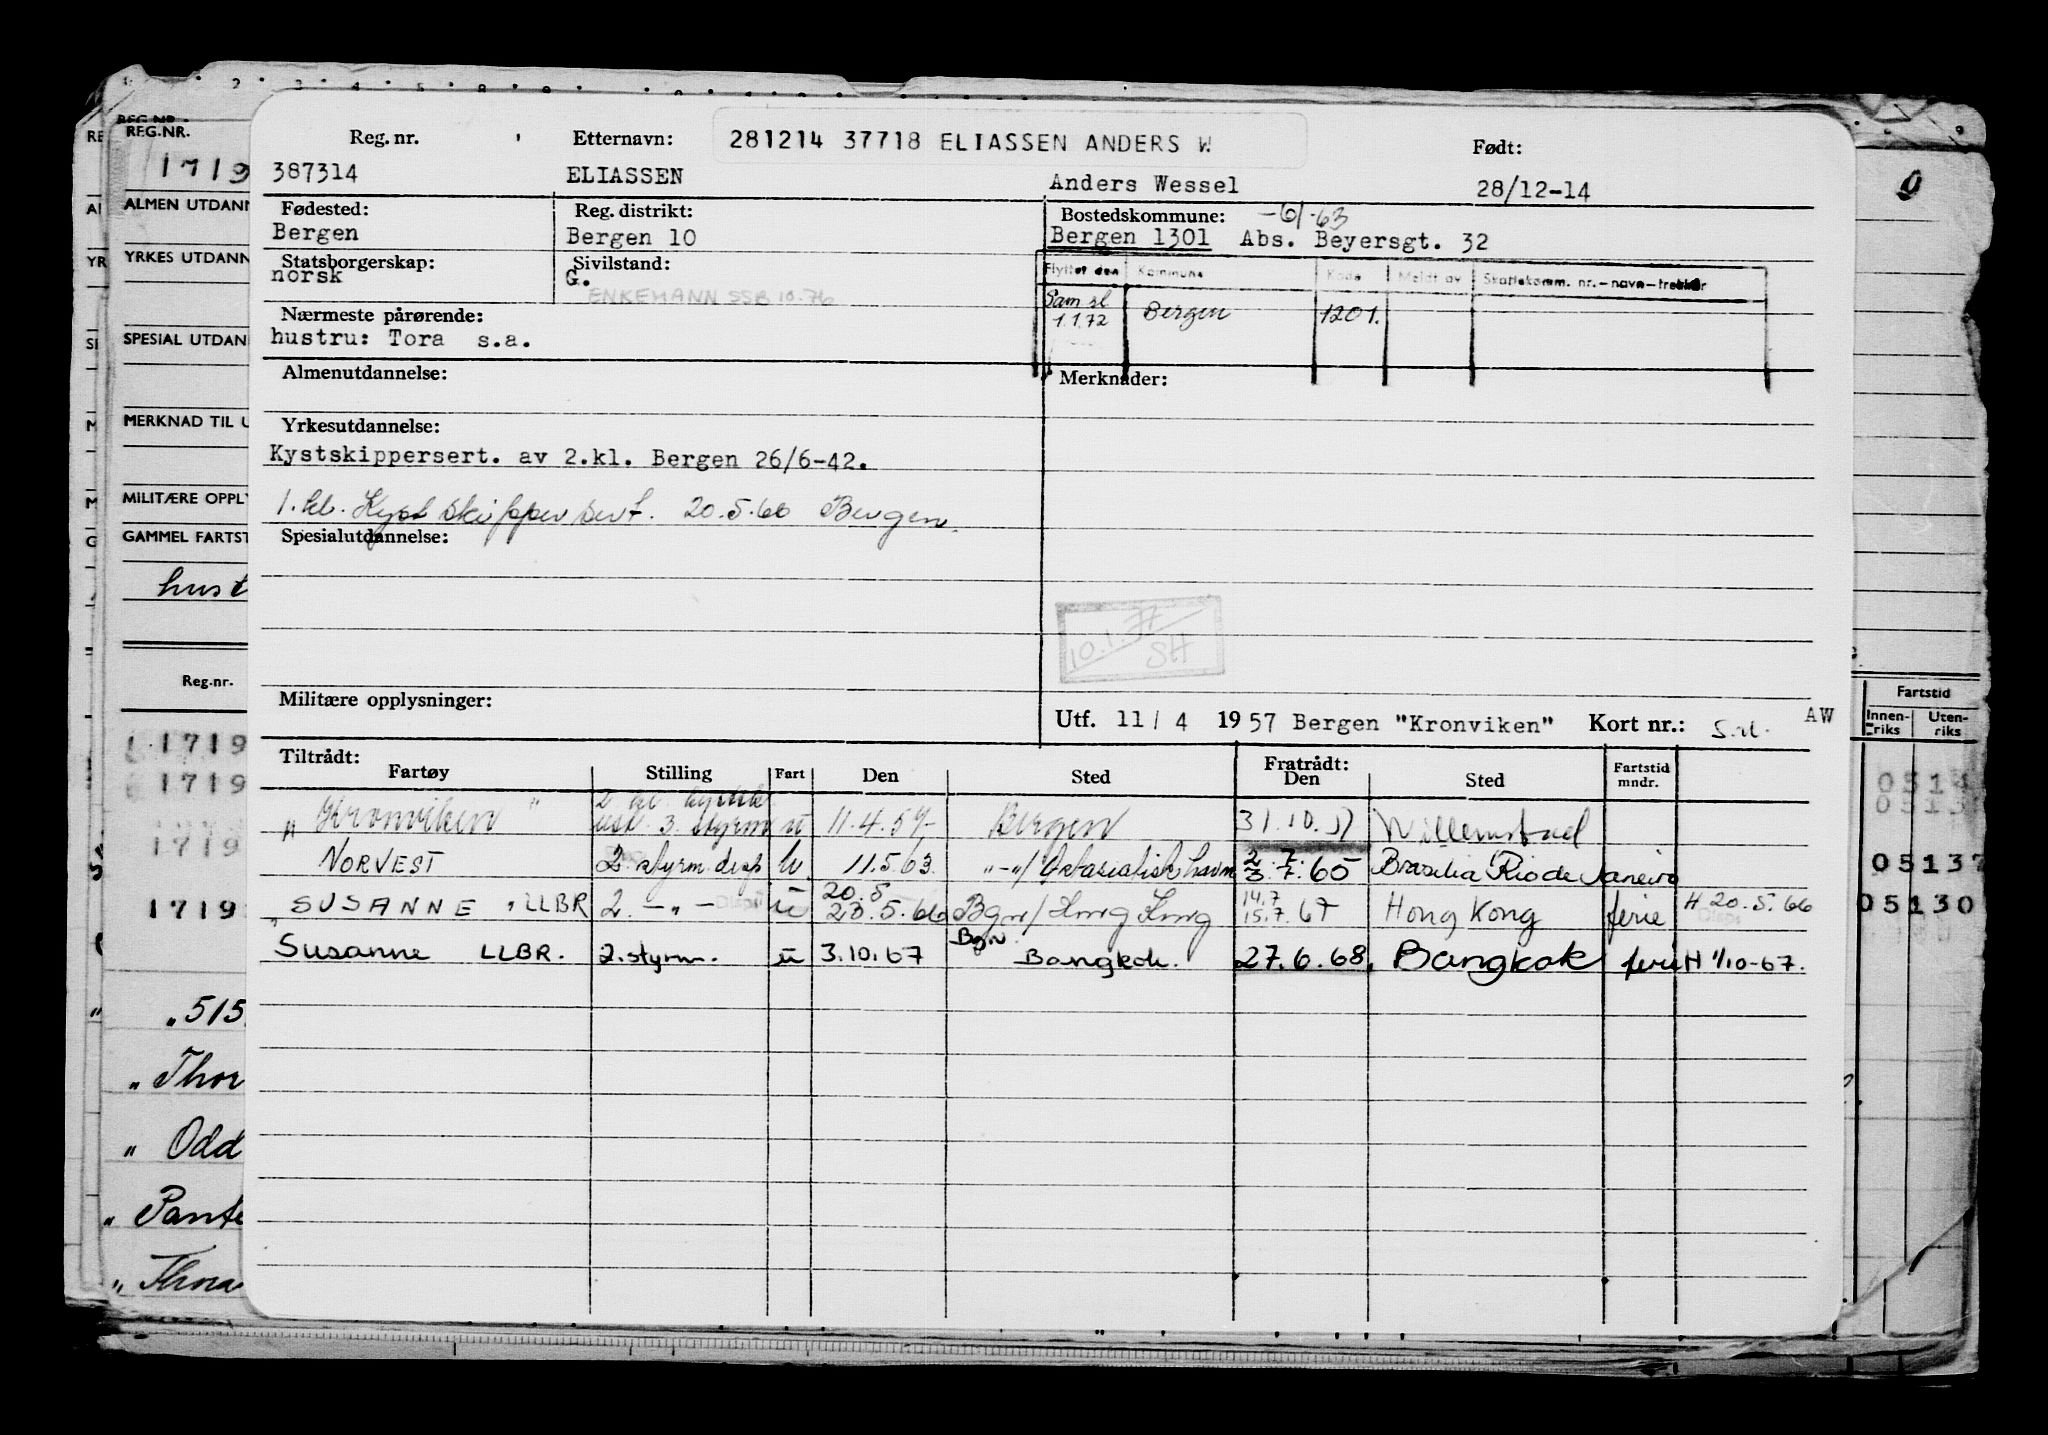 REG.NR.
1719
ALMEN UTDANN
YRKES UTDANN
SPESIAL UTDAN
MERKNAD TIL U
MILITÆRE OPPLY
GAMMEL FARTST
hust
Reg.nr.
1719
1719
1719
1719
"515
" Thor
" Odd
" Pante
" Thor
Reg. nr. Etternavn: 281214 37718 ELIASSEN ANDERS W Født:
387314 ELIASSEN Anders Wessel 28/12-14
Fødested: Reg. distrikt: Bostedskommune: -6/-63
Bergen Bergen 10 Bergen 1301 Abs. Beyersgt. 32
Statsborgerskap: Sivilstand:
norsk G.
ENKEMANN SSB 10.76
Flyttet den Kommune Kode Meldt av Skattekomm. nr.-navn-trekker
Sam.sl 1.1.72 Bergen 1201.
Nærmeste pårørende:
hustru: Tora s.a.
Almenutdannelse: Merknader:
Yrkesutdannelse:
Kystskippersert. av 2.kl. Bergen 26/6-42.
1. kl. Kystskippersert. 20.5.66 Bergen.
Spesialutdannelse:
10.1.77 SH
Militære opplysninger:
Utf. 11/4 1957 Bergen "Kronviken" Kort nr.: AW
Tiltrådt: Fratrådt:
Fartøy Stilling Fart Den Sted Den Sted Fartstid mndr.
"Kronviken" 3. styrm ü 11.4.57 Bergen 31.10.57 Willemstad
NORVEST 2. styrm. disp U. 11.5.63 "-"/ Østasiatisk havn 2.7. 3.7.65 Brasilia/Rio de Janeiro
"SUSANNE" LLBR 2. -"- Disp ü 20.5 23.5.66 Bgn/Hong Kong 14.7 15.7.67 Hong Kong ferie H 20.5.66
Susanne LLBR. 2.styrm. ü 3.10.67 Bgn Bangkok. 27.6.68. Bangkok ferie H 1/10-67.
Fartstid
Innen-riks Uten-riks
0514
0513
05137
05130